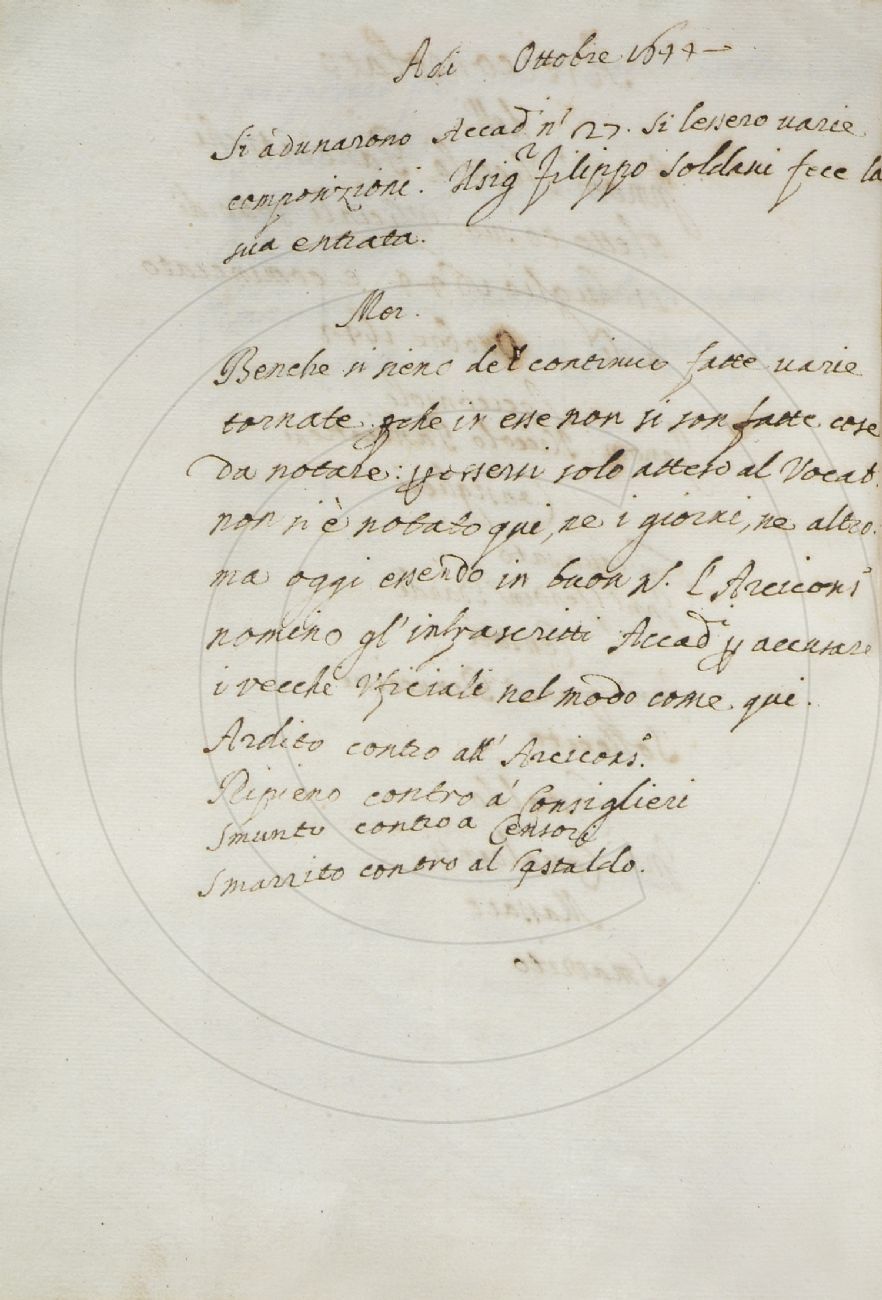 Adi Ottobre 1644
Si adunarono Accad.i n.° 27. si lessero varie
composizioni. Il sig.r Filippo Soldani fece la
sua entrata.
Mer.
Benche si sieno del continuo fatte varie
tornate, pche in esse non si son fatte cose
da notare: p essersi solo atteso al Vocab.
non si è notato qui, ne i giorni, ne altro.
ma oggi essendo in buon n.° l'Arcicons.o
nominò gl'infrascritti Accad.i p accusare
i vecchi Vficiali nel modo come qui.
Ardito contro all' Arcicons.o
Ripieno contro a' Consiglieri
Smunto contro a Censori
Smarrito contro al Castaldo.